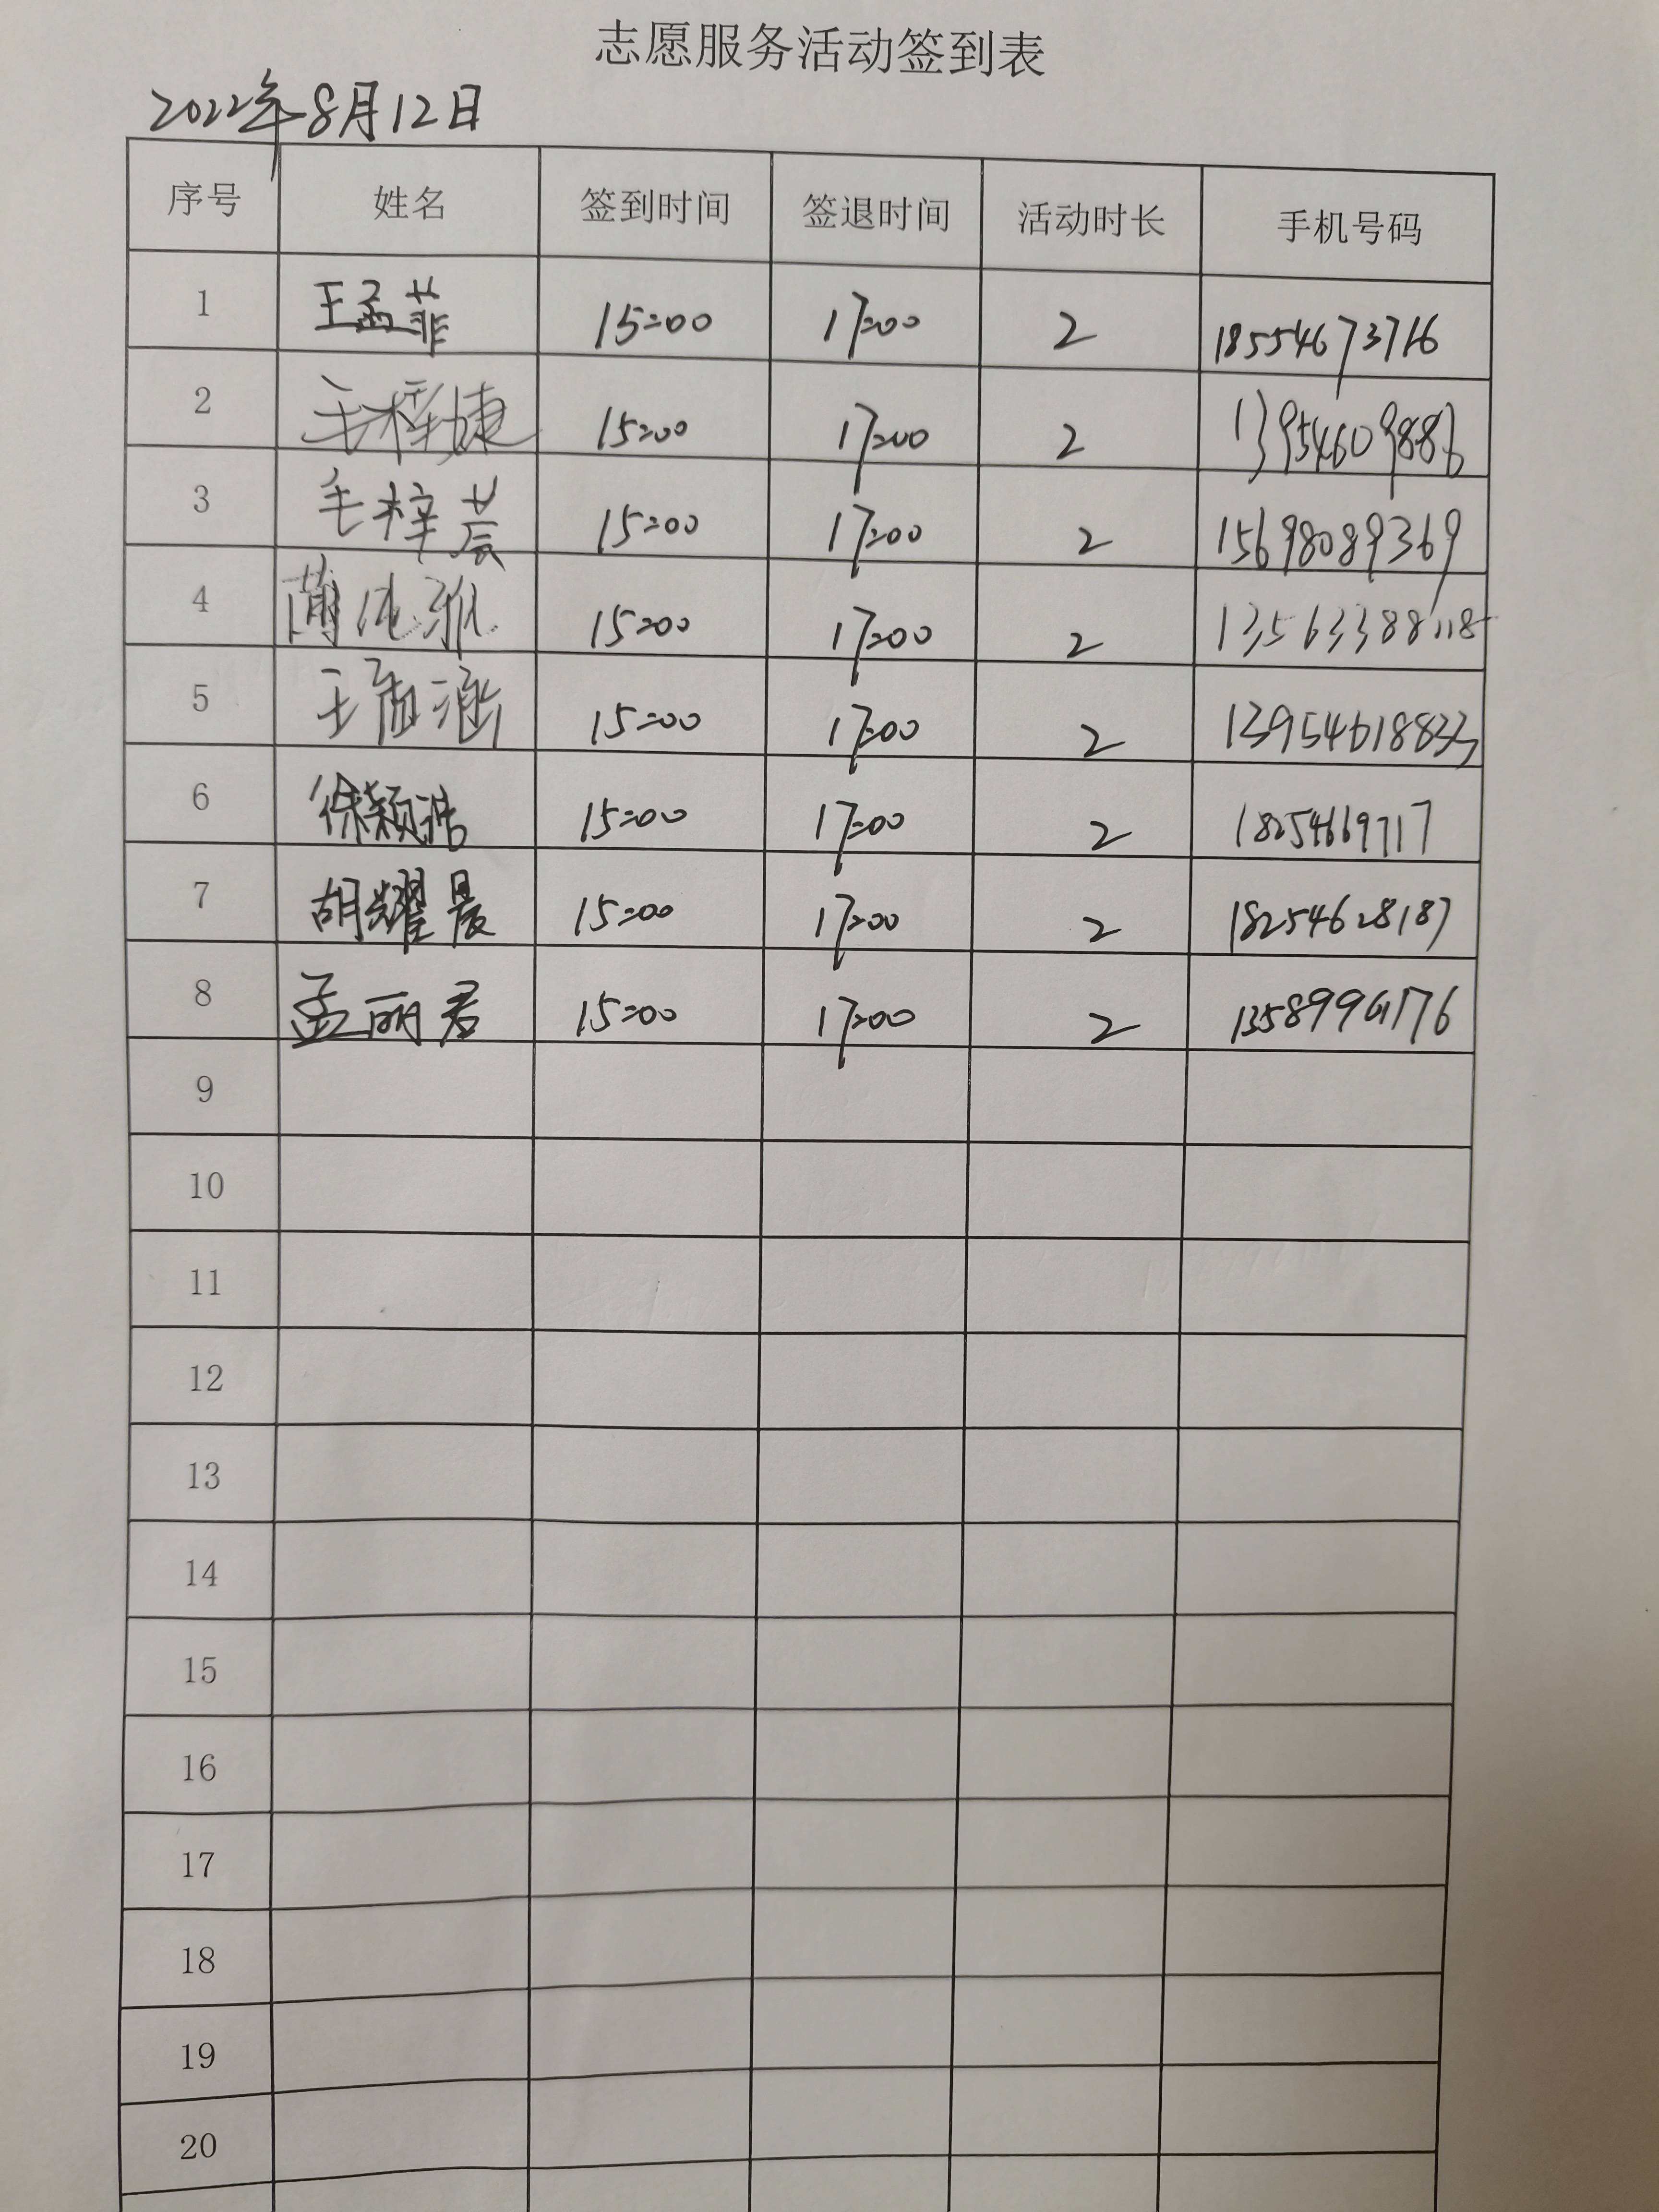 志愿服务活动签到表
2022年8月12日
序号 姓名 签到时间 签退时间 活动时长 手机号码
1 王孟菲 15:00 17:00 2 18554673716
2 15:00 17:00 2 13954609886
3 毛梓萱 15:00 17:00 2 15698089369
4 15:00 17:00 2
5 王 涵 15:00 17:00 2 13954618833
6 徐颖浩 15:00 17:00 2 18254669717
7 胡耀晨 15:00 17:00 2 18254628187
8 孟丽君 15:00 17:00 2
9
10
11
12
13
14
15
16
17
18
19
20